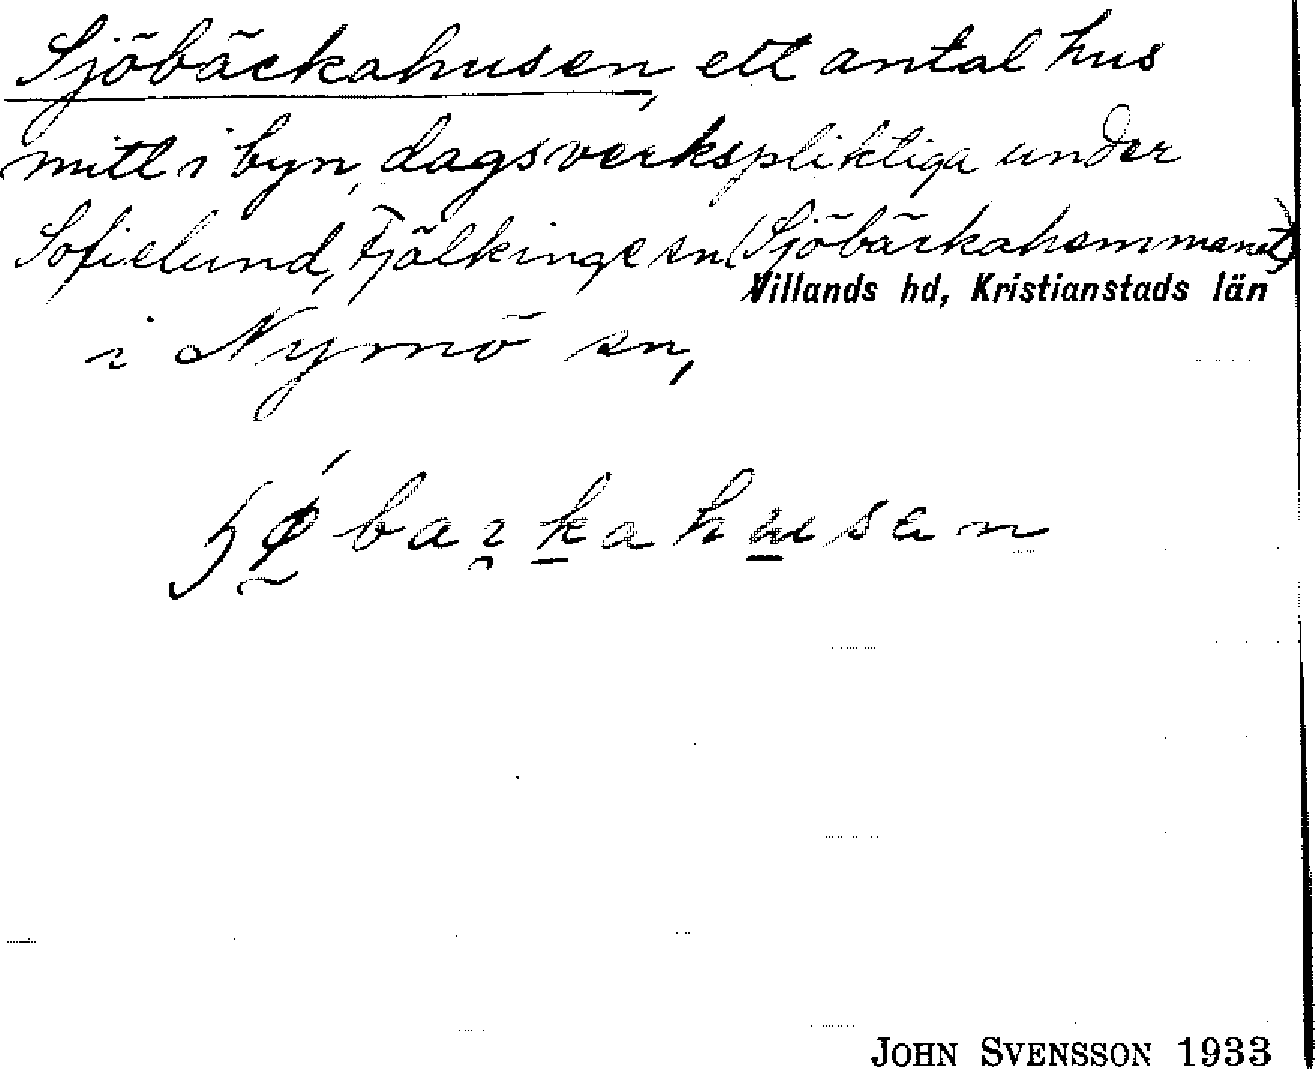 Sjöbäckahusen, ett antal hus
mitt i byn, dagsverkspliktiga under
Sofielund, Fjälkinge sn (Sjöbäckahemmanet)
Villands hd, Kristianstads län
i Nymö sn,
JOHN SVENSSON 1933